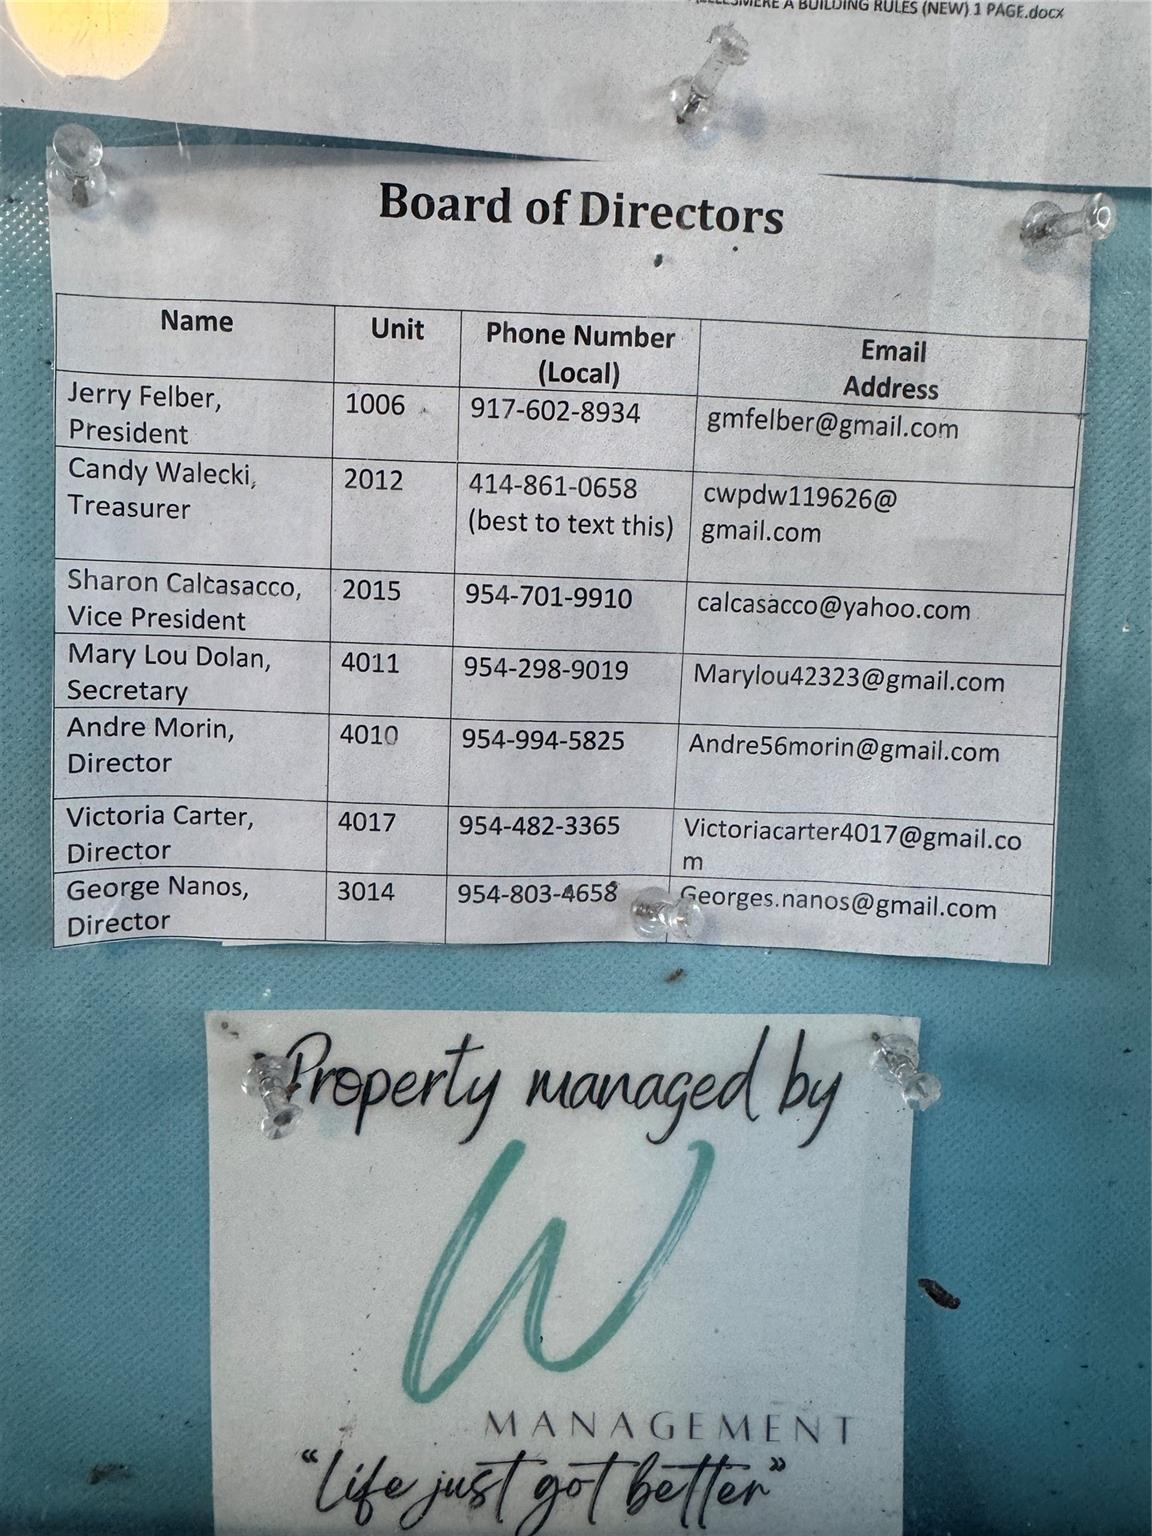 A BUILDING RULES (NEW) 1 PAGE.docx
Board of Directors
Name Unit Phone Number (Local) Email Address
Jerry Felber, President 1006 917-602-8934 gmfelber@gmail.com
Candy Walecki, Treasurer 2012 414-861-0658 (best to text this) cwpdw119626@gmail.com
Sharon Calcasacco, Vice President 2015 954-701-9910 calcasacco@yahoo.com
Mary Lou Dolan, Secretary 4011 954-298-9019 Marylou42323@gmail.com
Andre Morin, Director 4010 954-994-5825 Andre56morin@gmail.com
Victoria Carter, Director 4017 954-482-3365 Victoriacarter4017@gmail.com
George Nanos, Director 3014 954-803-4658 Georges.nanos@gmail.com
Property managed by
W
MANAGEMENT
"Life just got better"